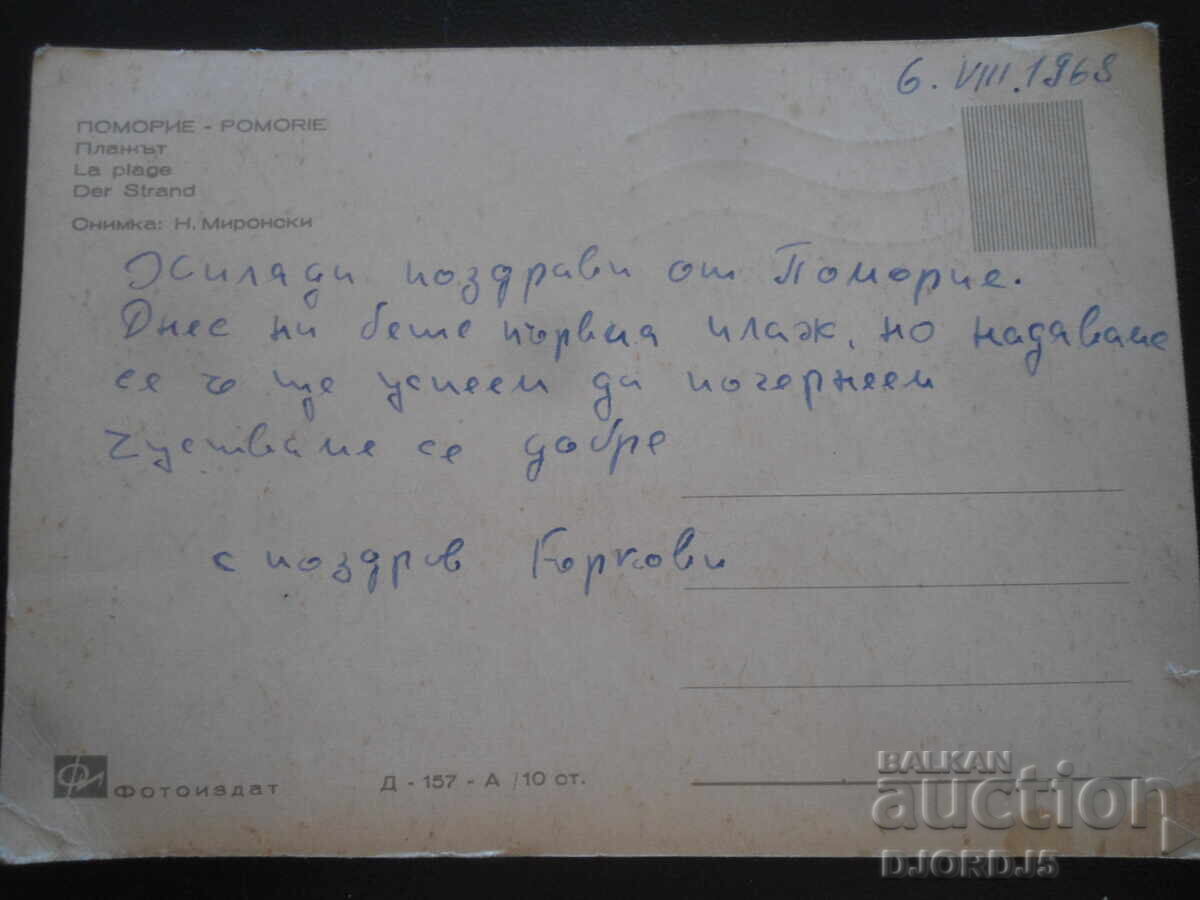 6. VIII. 1969
ПОМОРИЕ - POMORIE
Плажът
La plage
Der Strand
Снимка: Н. Миронски
Хиляди поздрави от Поморие.
Днес ни беше първия плаж, но надяваме
се че ще успеем да почернеем
Чустваме се добре
с поздрав Боркови
Фотоиздат
Д - 157 - А /10 ст.
BALKAN
auction
DJORDJ5